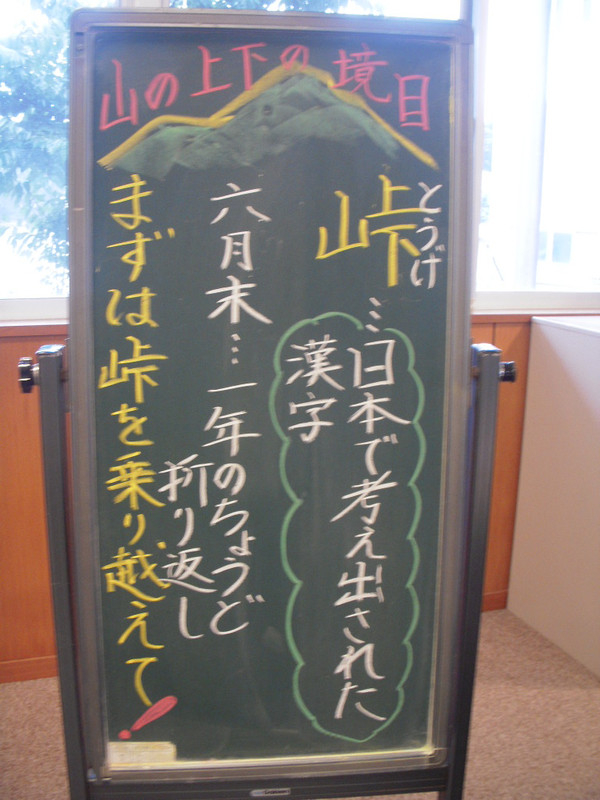 山の上下の境日
峠
とうげ
…日本で考え出された
漢字
六月末…一年のちょうど
折り返し
まずは峠を乗り越えて!